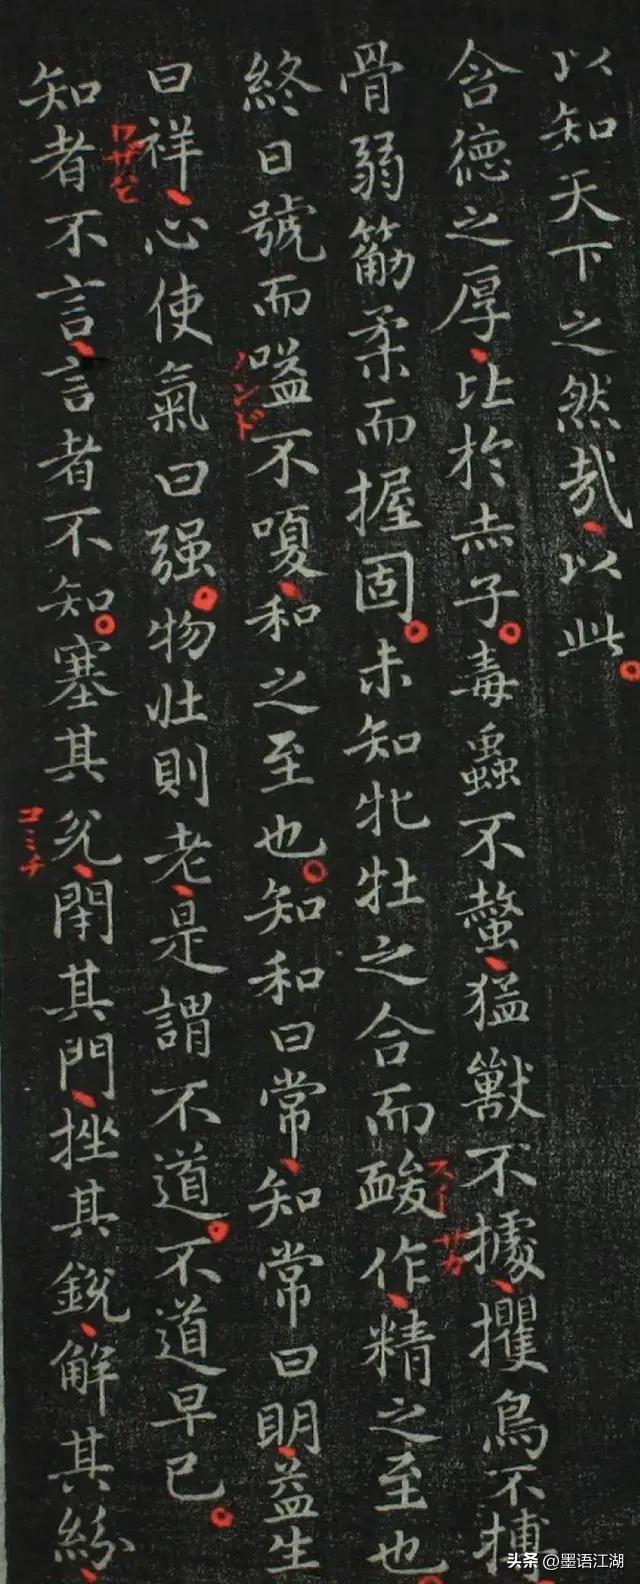 以知天下之然哉、以此。
含德之厚、比於赤子。毒蟲不螫、猛獸不據、攫鳥不搏
骨弱筋柔而握固。未知牝牡之合而朘作、精之至也。
スイ サカ
終日號而嗌不嗄、和之至也。知和曰常、知常曰明、益生
ハンド
曰祥、心使氣曰强。物壯則老、是謂不道。不道早已。
ワザハヒ
知者不言、言者不知。塞其兌、閉其門、挫其銳、解其紛、
コミチ
头条 @墨语江湖